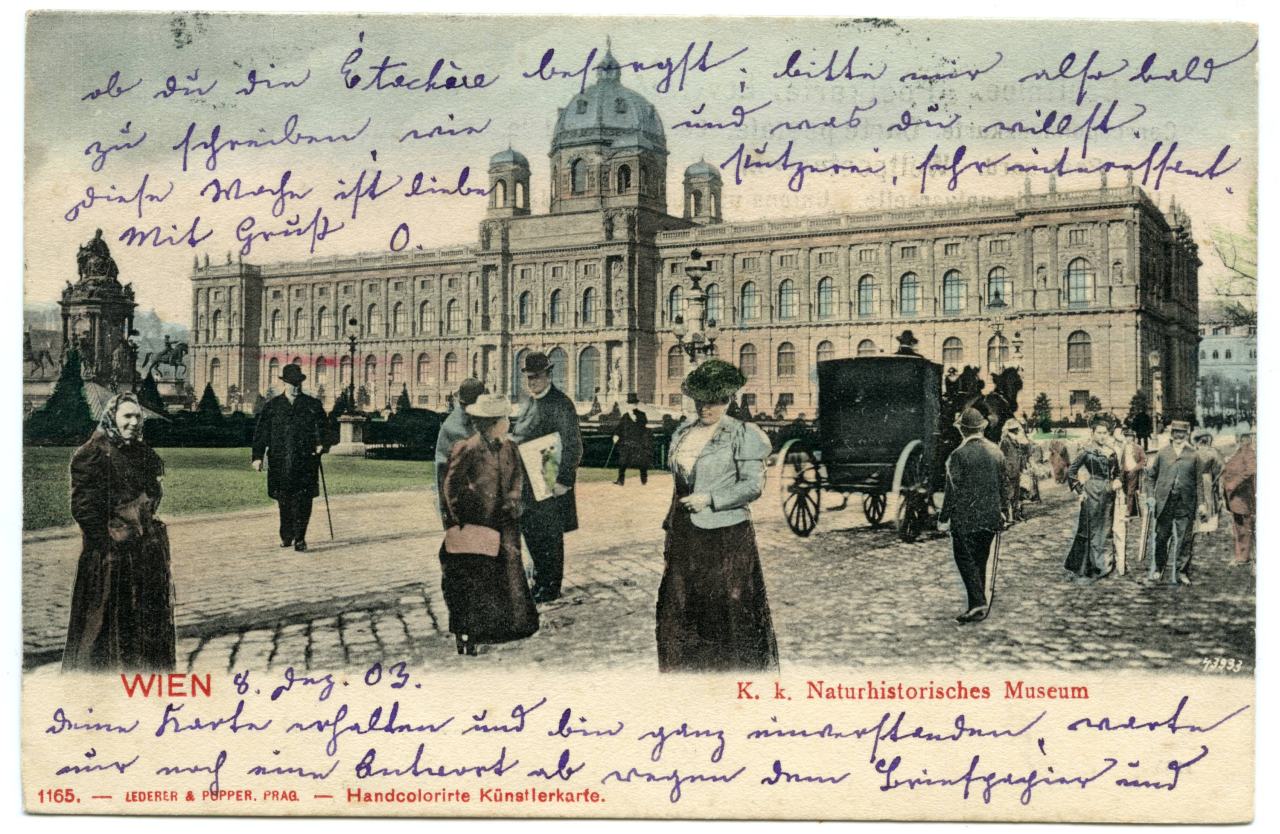 ob du die Etachäre besorgst, bitte mir also bald
zu schreiben, wie und was du willst.
diese Woche ist liebe Putzerei, sehr interessant.
Mit Gruß O.
WIEN 8. Dez. 03.
K. k. Naturhistorisches Museum
43933
deine Karte erhalten und bin ganz einverstanden, warte
nur noch eine Antwort ab wegen dem Briefpapier und
1165. — LEDERER & POPPER, PRAG. — Handcolorirte Künstlerkarte.